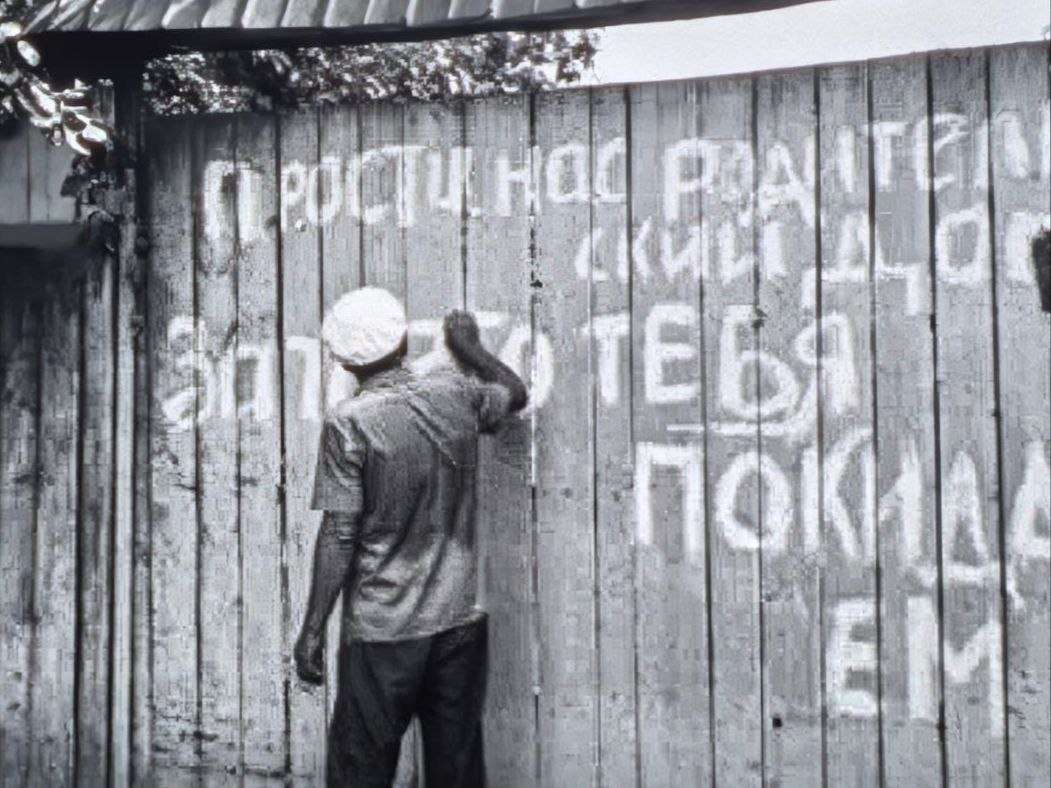 ПРОСТИ НАС РОДИТЕЛЬ
СКИЙ ДОМ
ЗА ТЕБЯ
ПОКИДА
ЕМ